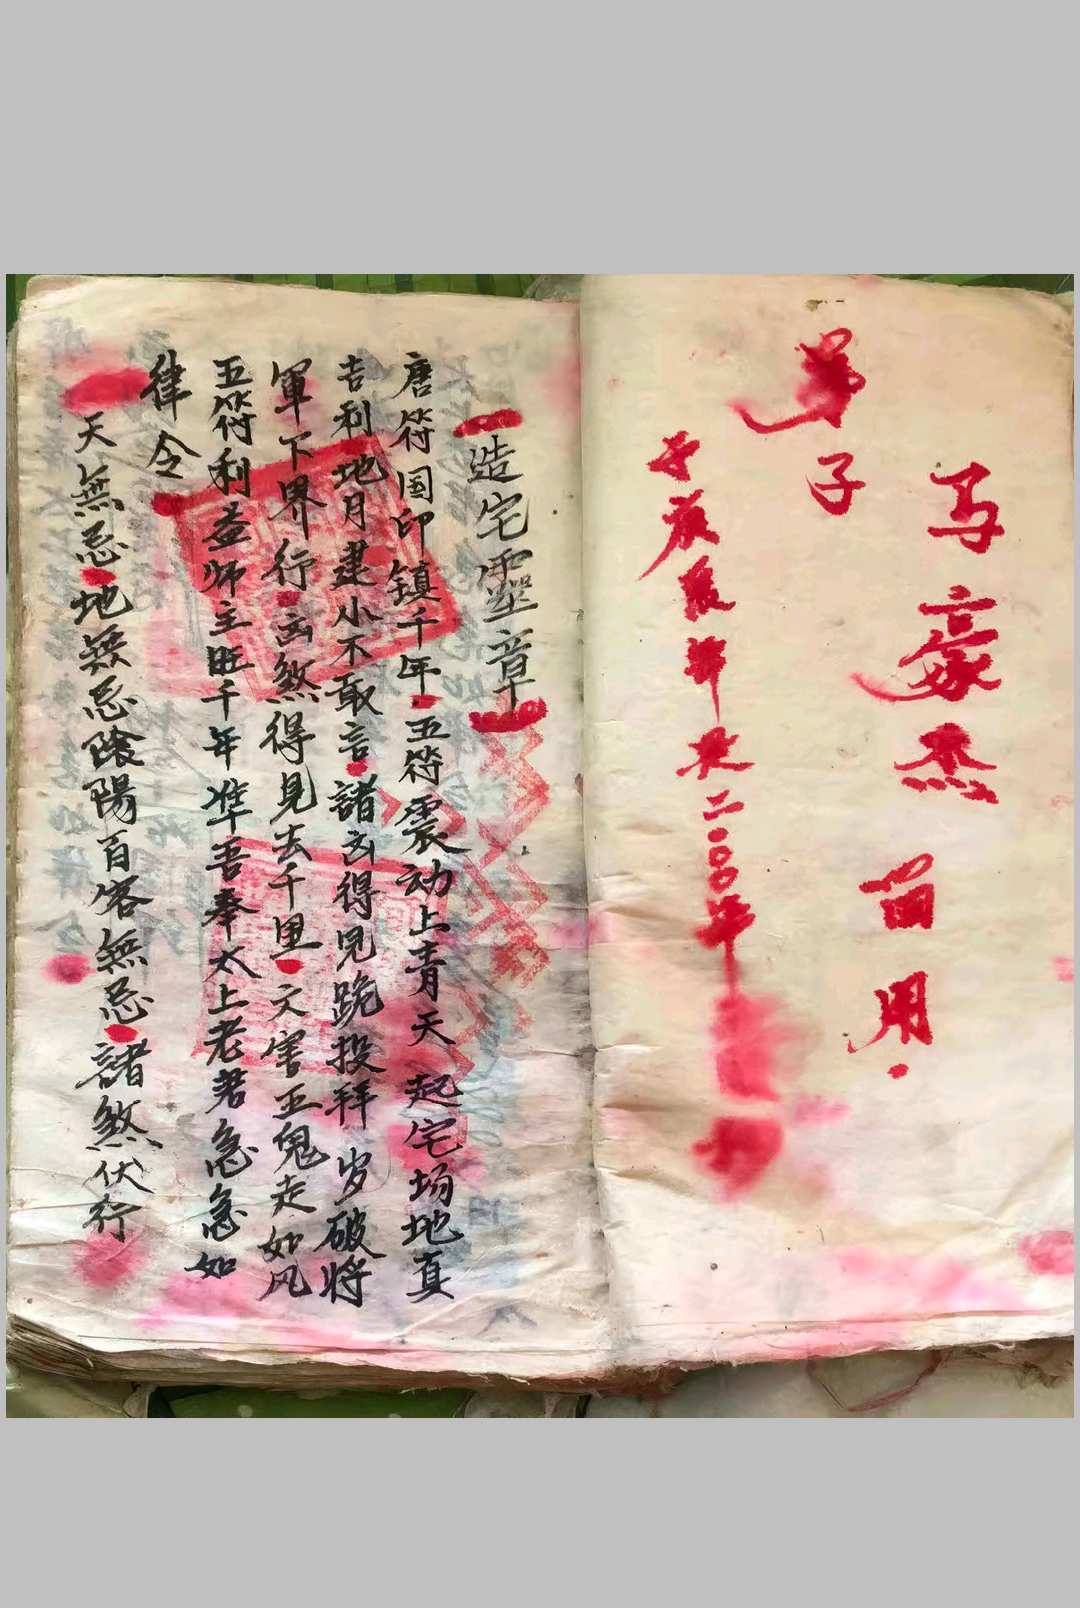 弟子
马豪杰 留用.
庚辰年 二〇〇〇年
造宅灵章
唐符国印镇千年 五符震动上青天 起宅场地真
吉利地月建小不敢言 諸凶得见跪投拜 岁破将
軍下界行 凶煞得見去千里 文害五鬼走如风
五符利益师主旺千年准吾奉太上老君急急如
律令
天無忌 地無忌陰陽百客無忌 諸煞伏行